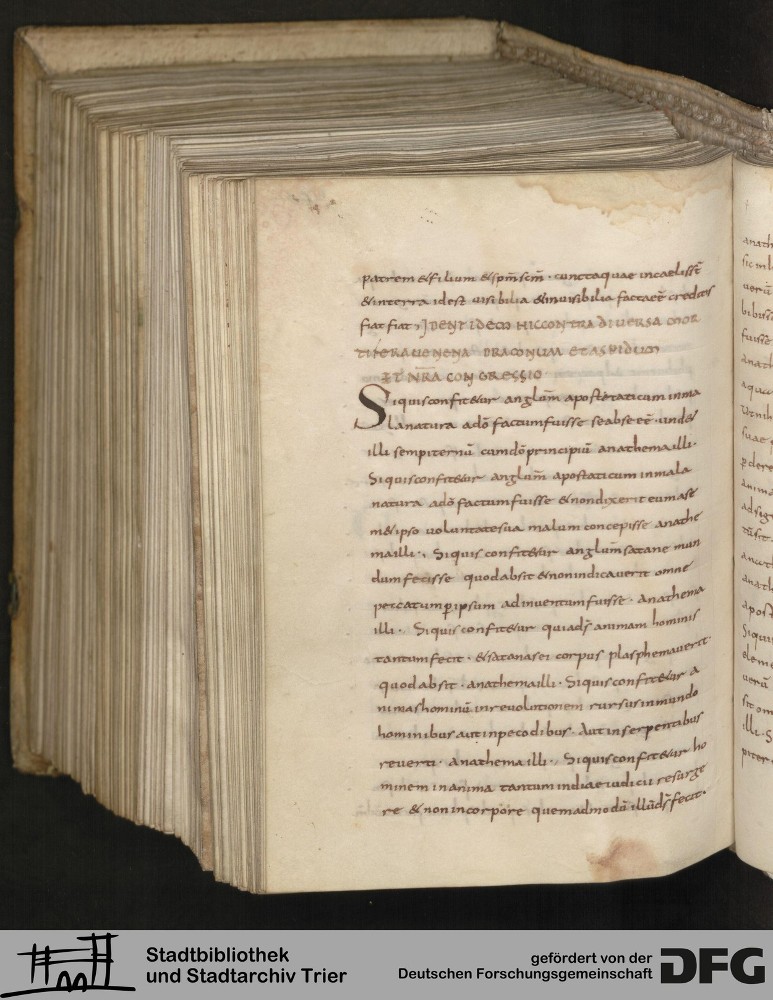 patrem &filium &spm̅scm̅ · cunctaquae incaelisst̅
&interra idest visibilia &invisibilia factaee̅ credites
fiat fiat,
TIFERAVENENA DRACONUM ETASPIDUM
ET NR̅A CONGRESSIO
Siquisconfit&ur anglum̅ apostataticum inma
lanatura ado̅ factumfuisse seabsee̅ · und&
illi sempiternu̅ cumdo̅principiu̅ anathemailli·
Siquisconfit&ur anglum̅ apostaticum inmala
natura ado̅factumfuisse &nondixerit eum ase
m&ipso voluntatesua malum concepisse anathe
mailli·, Siquis confit&ur anglum̅satane mun
dumfecisse quodabsit &nonindicaverit omne
peccatump̲ipsum adinventumfuisse · anathema
illi · Siquis confit&ur quiads̅ animam hominis
tantumfecit · &satanasei corpus plasphemaverit·
quodabsit · anathemailli · Siquisconfit&ur a
nimashominu̅ inrevolutionem rursusinmundo
hominibus autinpecodibus · Autinserpentibus
reverti · anathema illi · Siquisconfit&ur ho
minem inanima tantum indiaeiudicii resurge
re &nonincorpore quemadmodu̅ illu̅ds̅fecit·
anath
Stadtbibliothek
und Stadtarchiv Trier
gefördert von der
Deutschen Forschungsgemeinschaft
DFG